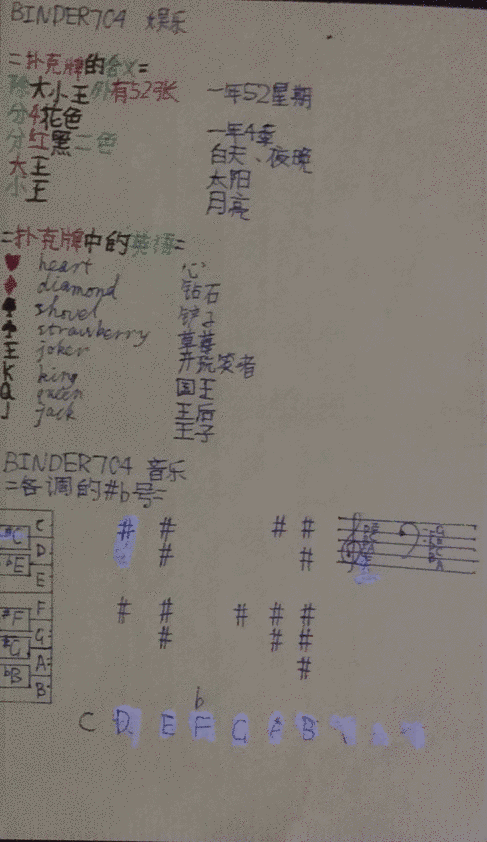 BINDER704 娱乐
=扑克牌的含义=
除大小王外有52张 一年52星期
分4花色 一年4季
分红黑二色 白天、夜晚
大王 太阳
小王 月亮
=扑克牌中的英语=
♥ heart 心
♦ diamond 钻石
♠ shovel 铲子
♣ strawberry 草莓
王 joker 开玩笑者
K king 国王
Q queen 王后
J jack 王子
BINDER704 音乐
=各调的#b号=
C # # # #
#C
D # #
bE
E
F # # # # #
#F
G # # #
#G
A #
bB
B
b
C D E F G A B